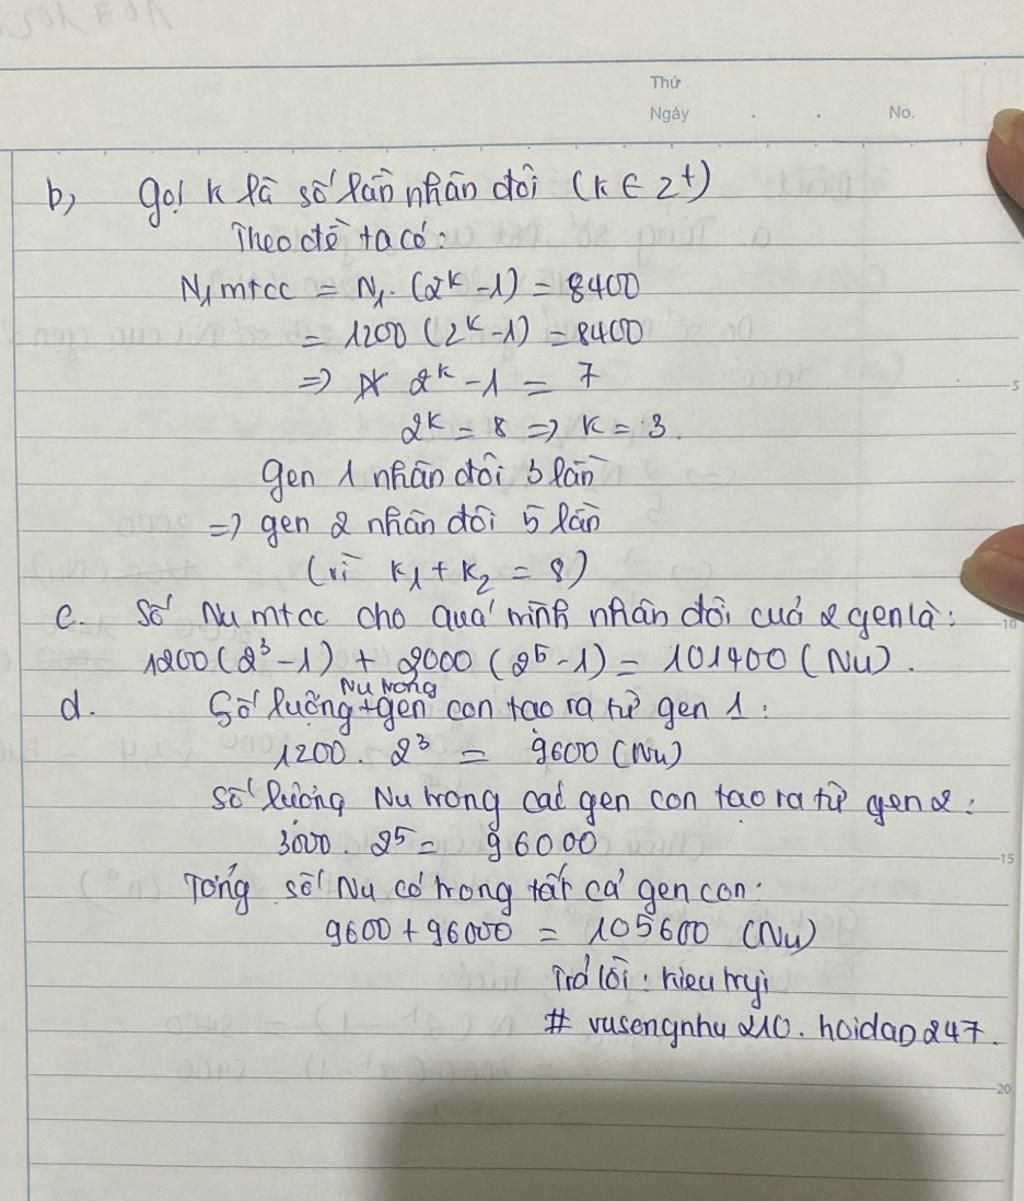 Thứ
Ngày . . No.
b, Gọi k là số lần nhân đôi (k ∈ Z⁺)
Theo đề ta có:
N₁mtcc = N₁. (2ᵏ -1) = 8400
= 1200 (2ᵏ -1) = 8400
=> 2ᵏ -1 = 7
5
2ᵏ = 8 => k = 3.
Gen 1 nhân đôi 3 lần
=> gen 2 nhân đôi 5 lần
(vì k₁ + k₂ = 8)
c. Số Nu mtcc cho quá trình nhân đôi của 2 gen là:
10
1200 (2³ -1) + 3000 (2⁵ -1) = 101400 (Nu).
d. Số lượng Nu trong gen con tạo ra từ gen 1:
1200. 2³ = 9600 (Nu)
Số lượng Nu trong các gen con tạo ra từ gen 2:
3000. 2⁵ = 96000
15
Tổng số Nu có trong tất cả gen con:
9600 + 96000 = 105600 (Nu)
Trả lời: hieu tryi
# vusengnhu 210. hoidap 247.
20